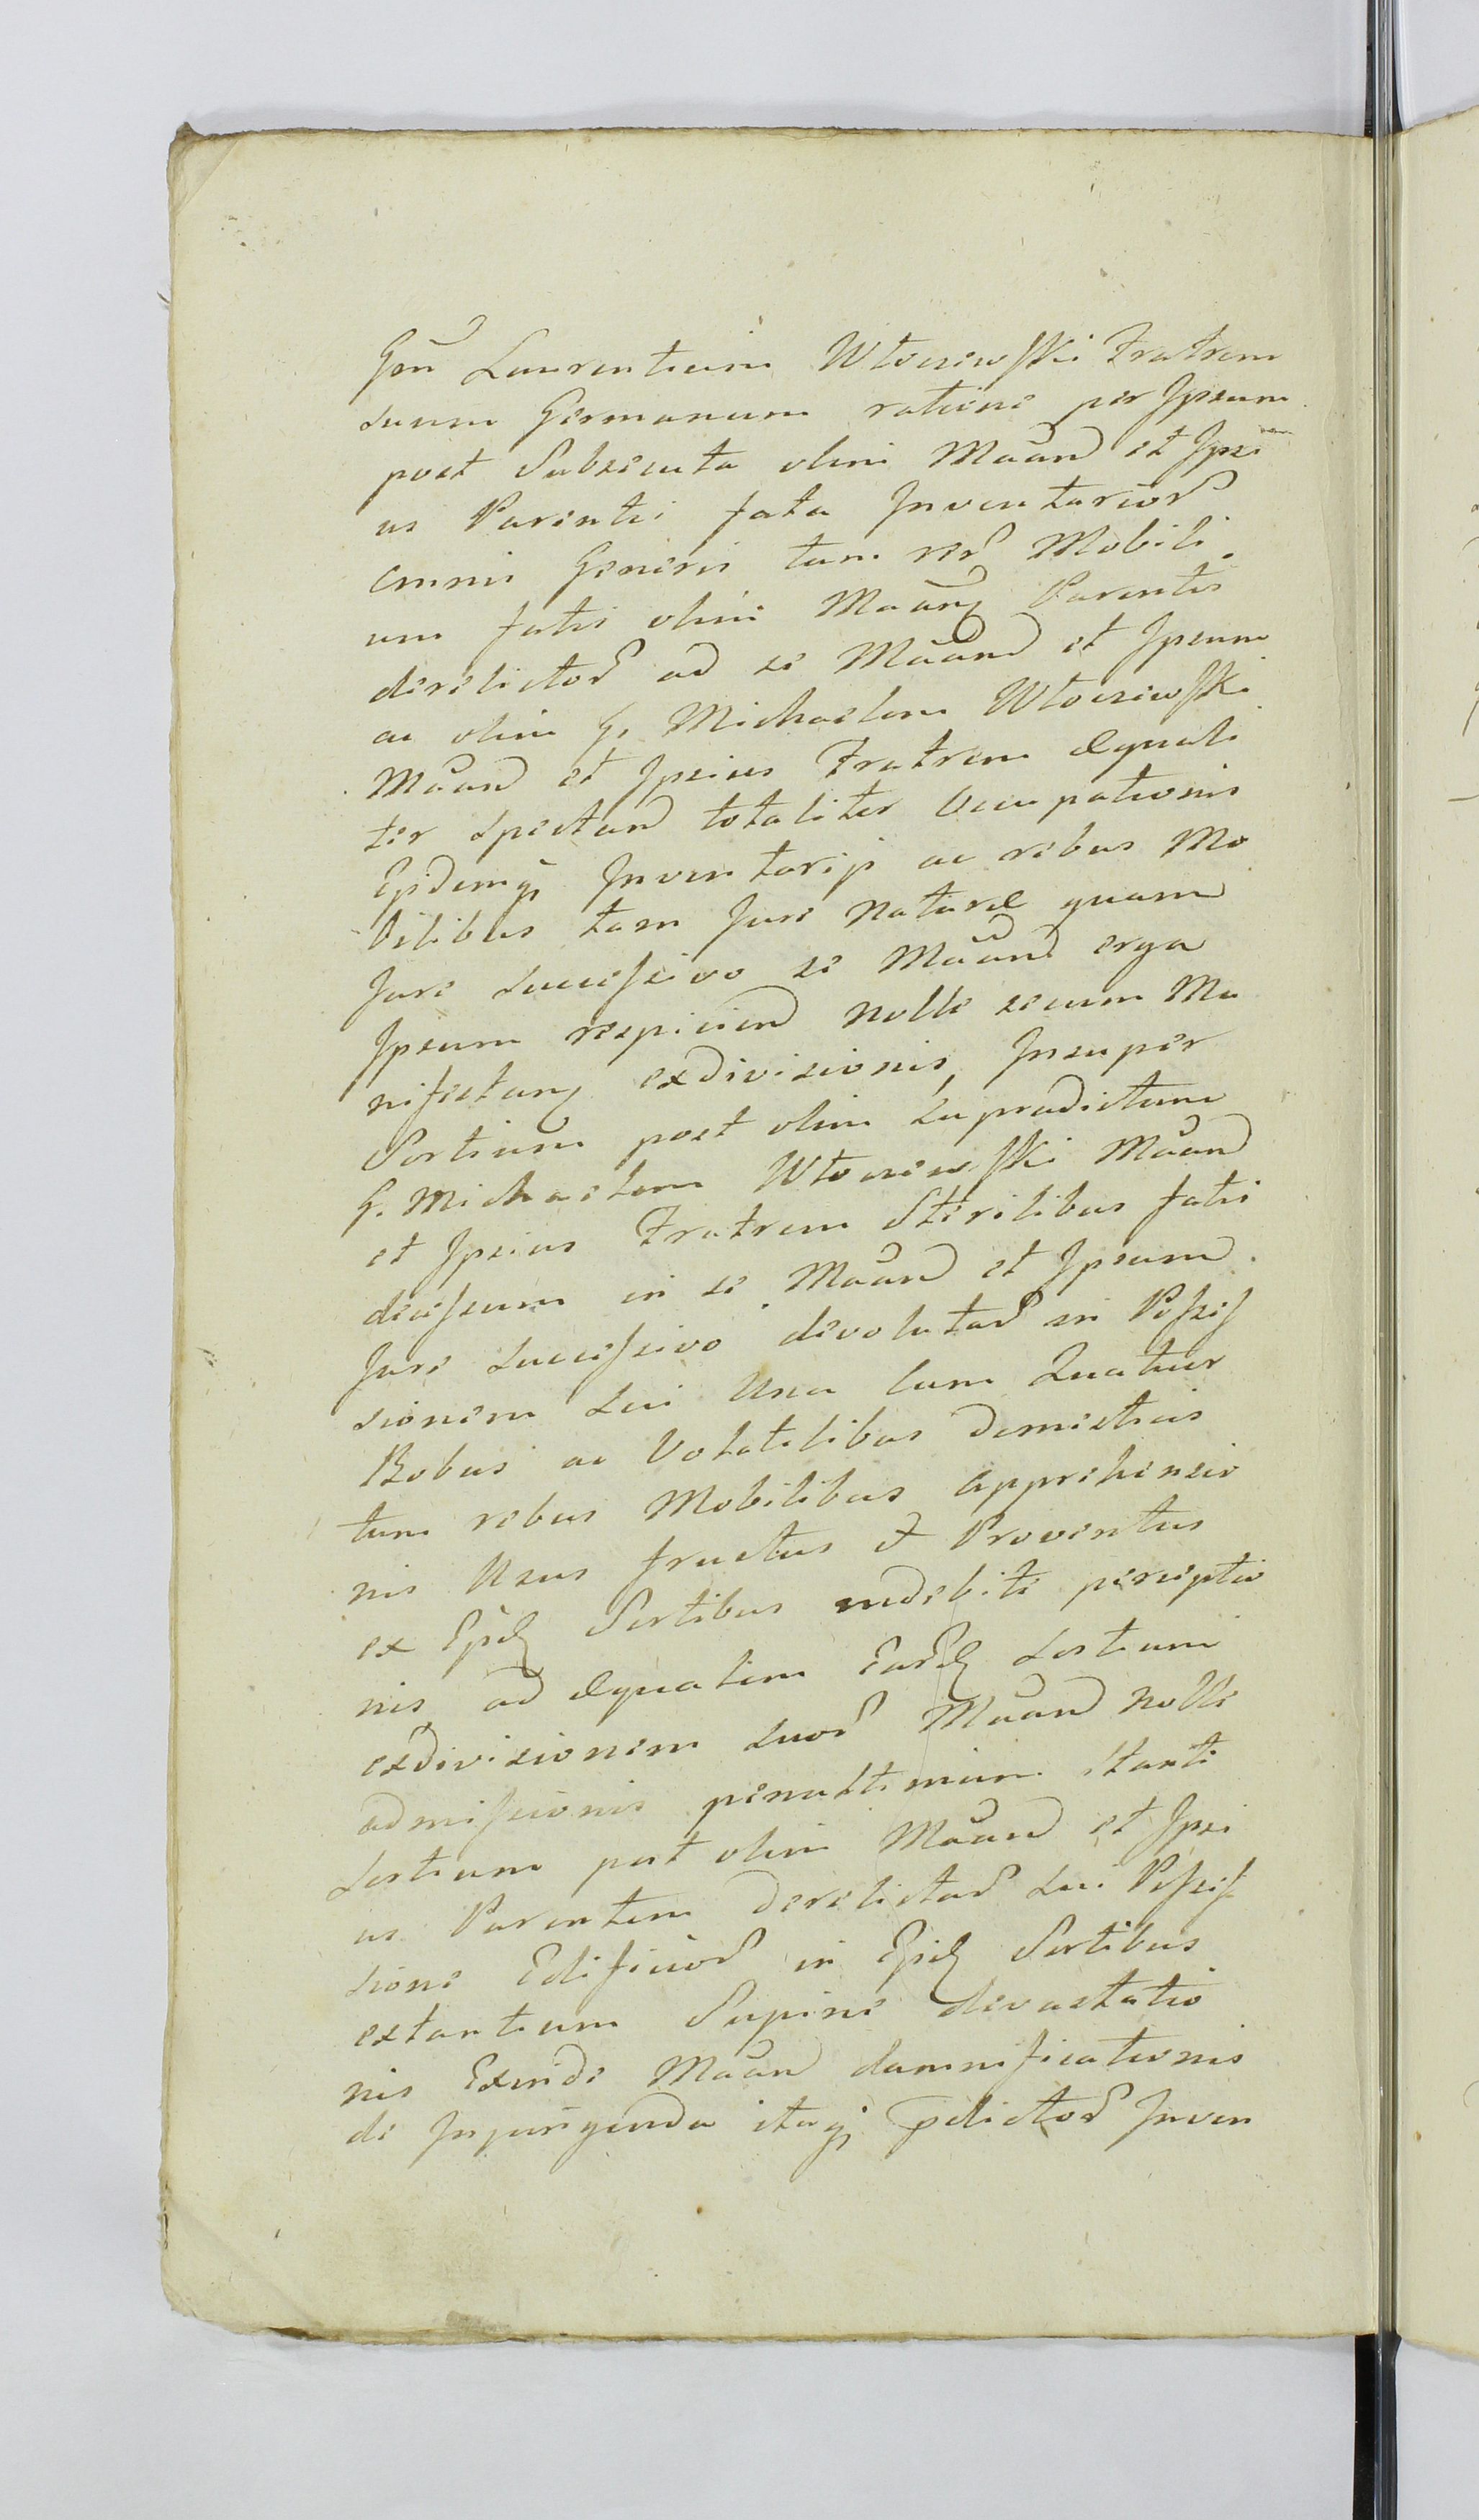 Gen̄ Laurentium Włoczewski Fratrem
suum Germanum ratione per Ipsum
post Subsecuta olim Māand et Ipsi
us Parentis fata Inventarior̃
omnis Generis tum rer̃ Mobili
um fatis olim Māanȝ Parentis
derelictor̃ ad se Māand et Ipsum
ac olim G. Michaelem Włoczewski
Māand et Ipsius Fratrem æquali
ter spectand totaliter Occupationis
Ejsdemqȝ Inventarijs ac rebus Mo
bilibus tam Jure Naturæ quam
Jure Successivo se Māand erga
Ipsum respiciend Nolle secum Ma
nifestanȝ exdivisionis, Insuper
Sortium post olim Supradictum
G. Michaelem Włoczewski Māand
et Ipsius Fratrem Sterilibus fatis
decessum in se Māand et Ipsum
Jure Successivo devolutar̃ in Posses
sionem Sui Una Cum Quatuor
Bobus ac Volatilibus Domesticis
tum rebus Mobilibus Apprehensio
nis Usus fructus et Proventus
ex Ejsdȝ Sortibus indebite perceptio
nis ad æqualem Eardȝ Sortium
exdivisionem Suor̃ Māand Nolle
admissionis penultimum Stante
Sortium post olim Māand et Ipsi
us Parentem Derelictar̃ Sui Posses
sione Edificior̃ in Ejsdȝ Sortibus
extantium Supine devastatio
nis Exinde Māand damnificationis
de Injungenda itaqȝ p̄dictor̃ Inven